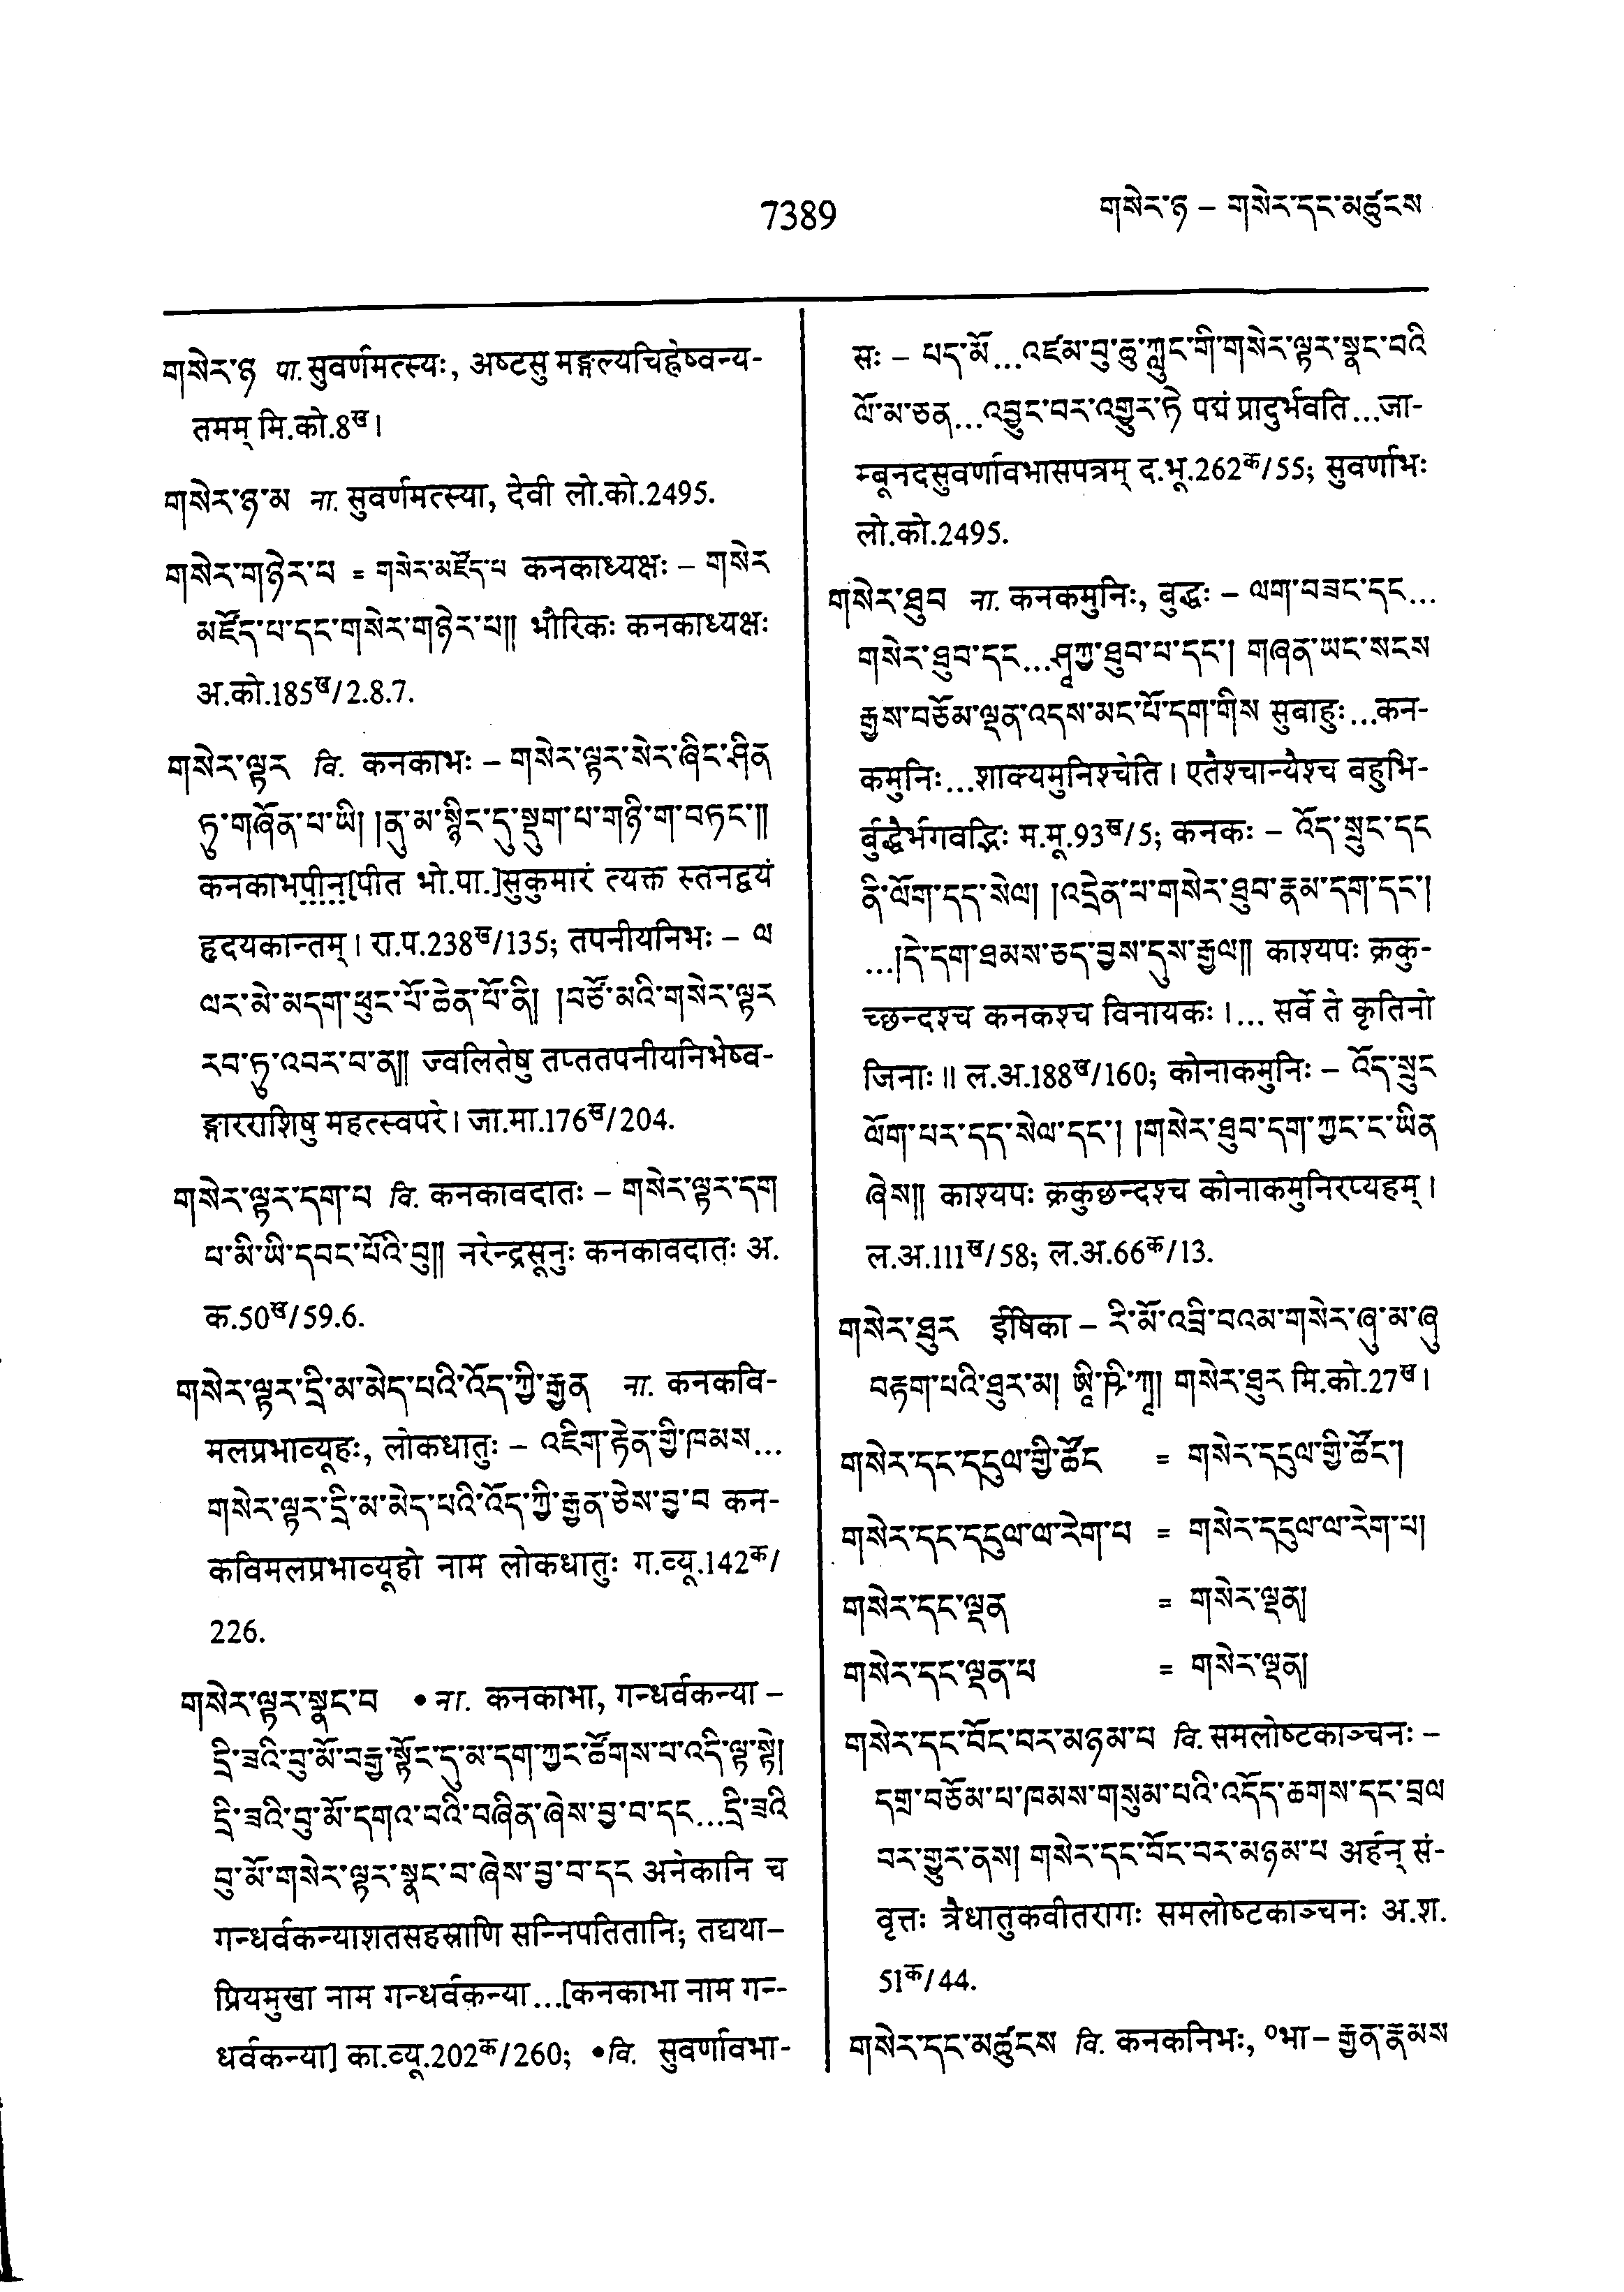 7389
གསེར་ཉ – གསེར་དང་མཚུངས
གསེར་ཉ पा. सुवर्णमत्स्यः, अष्टसु मङ्गल्यचिह्नेष्वन्य-
तमम् मि.को.8ख।
གསེར་ཉ་མ ना. सुवर्णमत्स्या, देवी लो.को.2495.
གསེར་གཉེར་པ = གསེར་མཛོད་པ कनकाध्यक्षः – གསེར
མཛོད་པ་དང་གསེར་གཉེར་པ༎ भौरिकः कनकाध्यक्षः
अ.को.185ख/2.8.7.
གསེར་ལྟར वि. कनकाभः – གསེར་ལྟར་སེར་ཞིང་ཤིན
ཏུ་གཞོན་པ་ཡི། །ནུ་མ་སྙིང་དུ་སྡུག་པ་གཉི་ག་བཏང་༎
कनकाभपीन[पीत भो.पा.]सुकुमारं त्यक्त स्तनद्वयं
हृदयकान्तम्। रा.प.238ख/135; तपनीयनिभः – ལ
ལར་མེ་མདག་ཕུང་པོ་ཆེན་པོ་ནི། །བཙོ་མའི་གསེར་ལྟར
རབ་ཏུ་འབར་བ་ན༎ ज्वलितेषु तप्ततपनीयनिभेष्व-
ङ्गारराशिषु महत्स्वपरे। जा.मा.176ख/204.
གསེར་ལྟར་དག་པ वि. कनकावदातः – གསེར་ལྟར་དག
པ་མི་ཡི་དབང་པོའི་བུ༎ नरेन्द्रसूनुः कनकावदातः अ.
क.50ख/59.6.
གསེར་ལྟར་དྲི་མ་མེད་པའི་འོད་ཀྱི་རྒྱན ना. कनकवि-
मलप्रभाव्यूहः, लोकधातुः – འཇིག་རྟེན་གྱི་ཁམས...
གསེར་ལྟར་དྲི་མ་མེད་པའི་འོད་ཀྱི་རྒྱན་ཅེས་བྱ་བ कन-
कविमलप्रभाव्यूहो नाम लोकधातुः ग.व्यू.142क/
226.
གསེར་ལྟར་སྣང་བ • ना. कनकाभा, गन्धर्वकन्या –
དྲི་ཟའི་བུ་མོ་བརྒྱ་སྟོང་དུ་མ་དག་ཀྱང་ཚོགས་པ་འདི་ལྟ་སྟེ།
དྲི་ཟའི་བུ་མོ་དགའ་བའི་བཞིན་ཞེས་བྱ་བ་དང...དྲི་ཟའི
བུ་མོ་གསེར་ལྟར་སྣང་བ་ཞེས་བྱ་བ་དང अनेकानि च
गन्धर्वकन्याशतसहस्राणि सन्निपतितानि; तद्यथा–
प्रियमुखा नाम गन्धर्वकन्या...[कनकाभा नाम गन्-
धर्वकन्या] का.व्यू.202क/260; •वि. सुवर्णावभा-
सः – པད་མོ...འཛམ་བུ་ཆུ་ཀླུང་གི་གསེར་ལྟར་སྣང་བའི
ལོ་མ་ཅན...འབྱུང་བར་འགྱུར་ཏེ पद्मं प्रादुर्भवति...जा-
म्बूनदसुवर्णावभासपत्रम् द.भू.262क/55; सुवर्णाभः
लो.को.2495.
གསེར་ཐུབ ना. कनकमुनिः, बुद्धः – ལག་བཟང་དང...
གསེར་ཐུབ་དང...ཤཱཀྱ་ཐུབ་པ་དང་། གཞན་ཡང་སངས
རྒྱས་བཅོམ་ལྡན་འདས་མང་པོ་དག་གིས सुबाहुः...कन-
कमुनिः...शाक्यमुनिश्चेति। एतैश्चान्यैश्च बहुभि-
र्बुद्धैर्भगवद्भिः म.मू.93ख/5; कनकः – འོད་སྲུང་དང
ནི་ལོག་དད་སེལ། །འདྲེན་པ་གསེར་ཐུབ་རྣམ་དག་དང་།
...།དེ་དག་ཐམས་ཅད་བྱས་དུས་རྒྱལ༎ काश्यपः क्रकु-
च्छन्दश्च कनकश्च विनायकः।... सर्वे ते कृतिनो
जिनाः॥ ल.अ.188ख/160; कोनाकमुनिः – འོད་སྲུང
ལོག་པར་དད་སེལ་དང་། །གསེར་ཐུབ་དག་ཀྱང་ང་ཡིན
ཞེས༎ काश्यपः क्रकुछन्दश्च कोनाकमुनिरप्यहम्।
ल.अ.111ख/58; ल.अ.66क/13.
གསེར་ཐུར ईषिका – རི་མོ་འབྲི་བའམ་གསེར་ཞུ་མ་ཞུ
བརྟག་པའི་ཐུར་མ། ཨཱི་ཥི་ཀཱ། གསེར་ཐུར मि.को.27ख।
གསེར་དང་དངུལ་གྱི་ཚོང = གསེར་དངུལ་གྱི་ཚོང་།
གསེར་དང་དངུལ་ལ་རེག་པ = གསེར་དངུལ་ལ་རེག་པ།
གསེར་དང་ལྡན = གསེར་ལྡན།
གསེར་དང་ལྡན་པ = གསེར་ལྡན།
གསེར་དང་བོང་བར་མཉམ་པ वि. समलोष्टकाञ्चनः –
དགྲ་བཅོམ་པ་ཁམས་གསུམ་པའི་འདོད་ཆགས་དང་བྲལ
བར་གྱུར་ནས། གསེར་དང་བོང་བར་མཉམ་པ अर्हन् सं-
वृत्तः त्रैधातुकवीतरागः समलोष्टकाञ्चनः अ.श.
51क/44.
གསེར་དང་མཚུངས वि. कनकनिभः, ०भा – རྒྱན་རྣམས